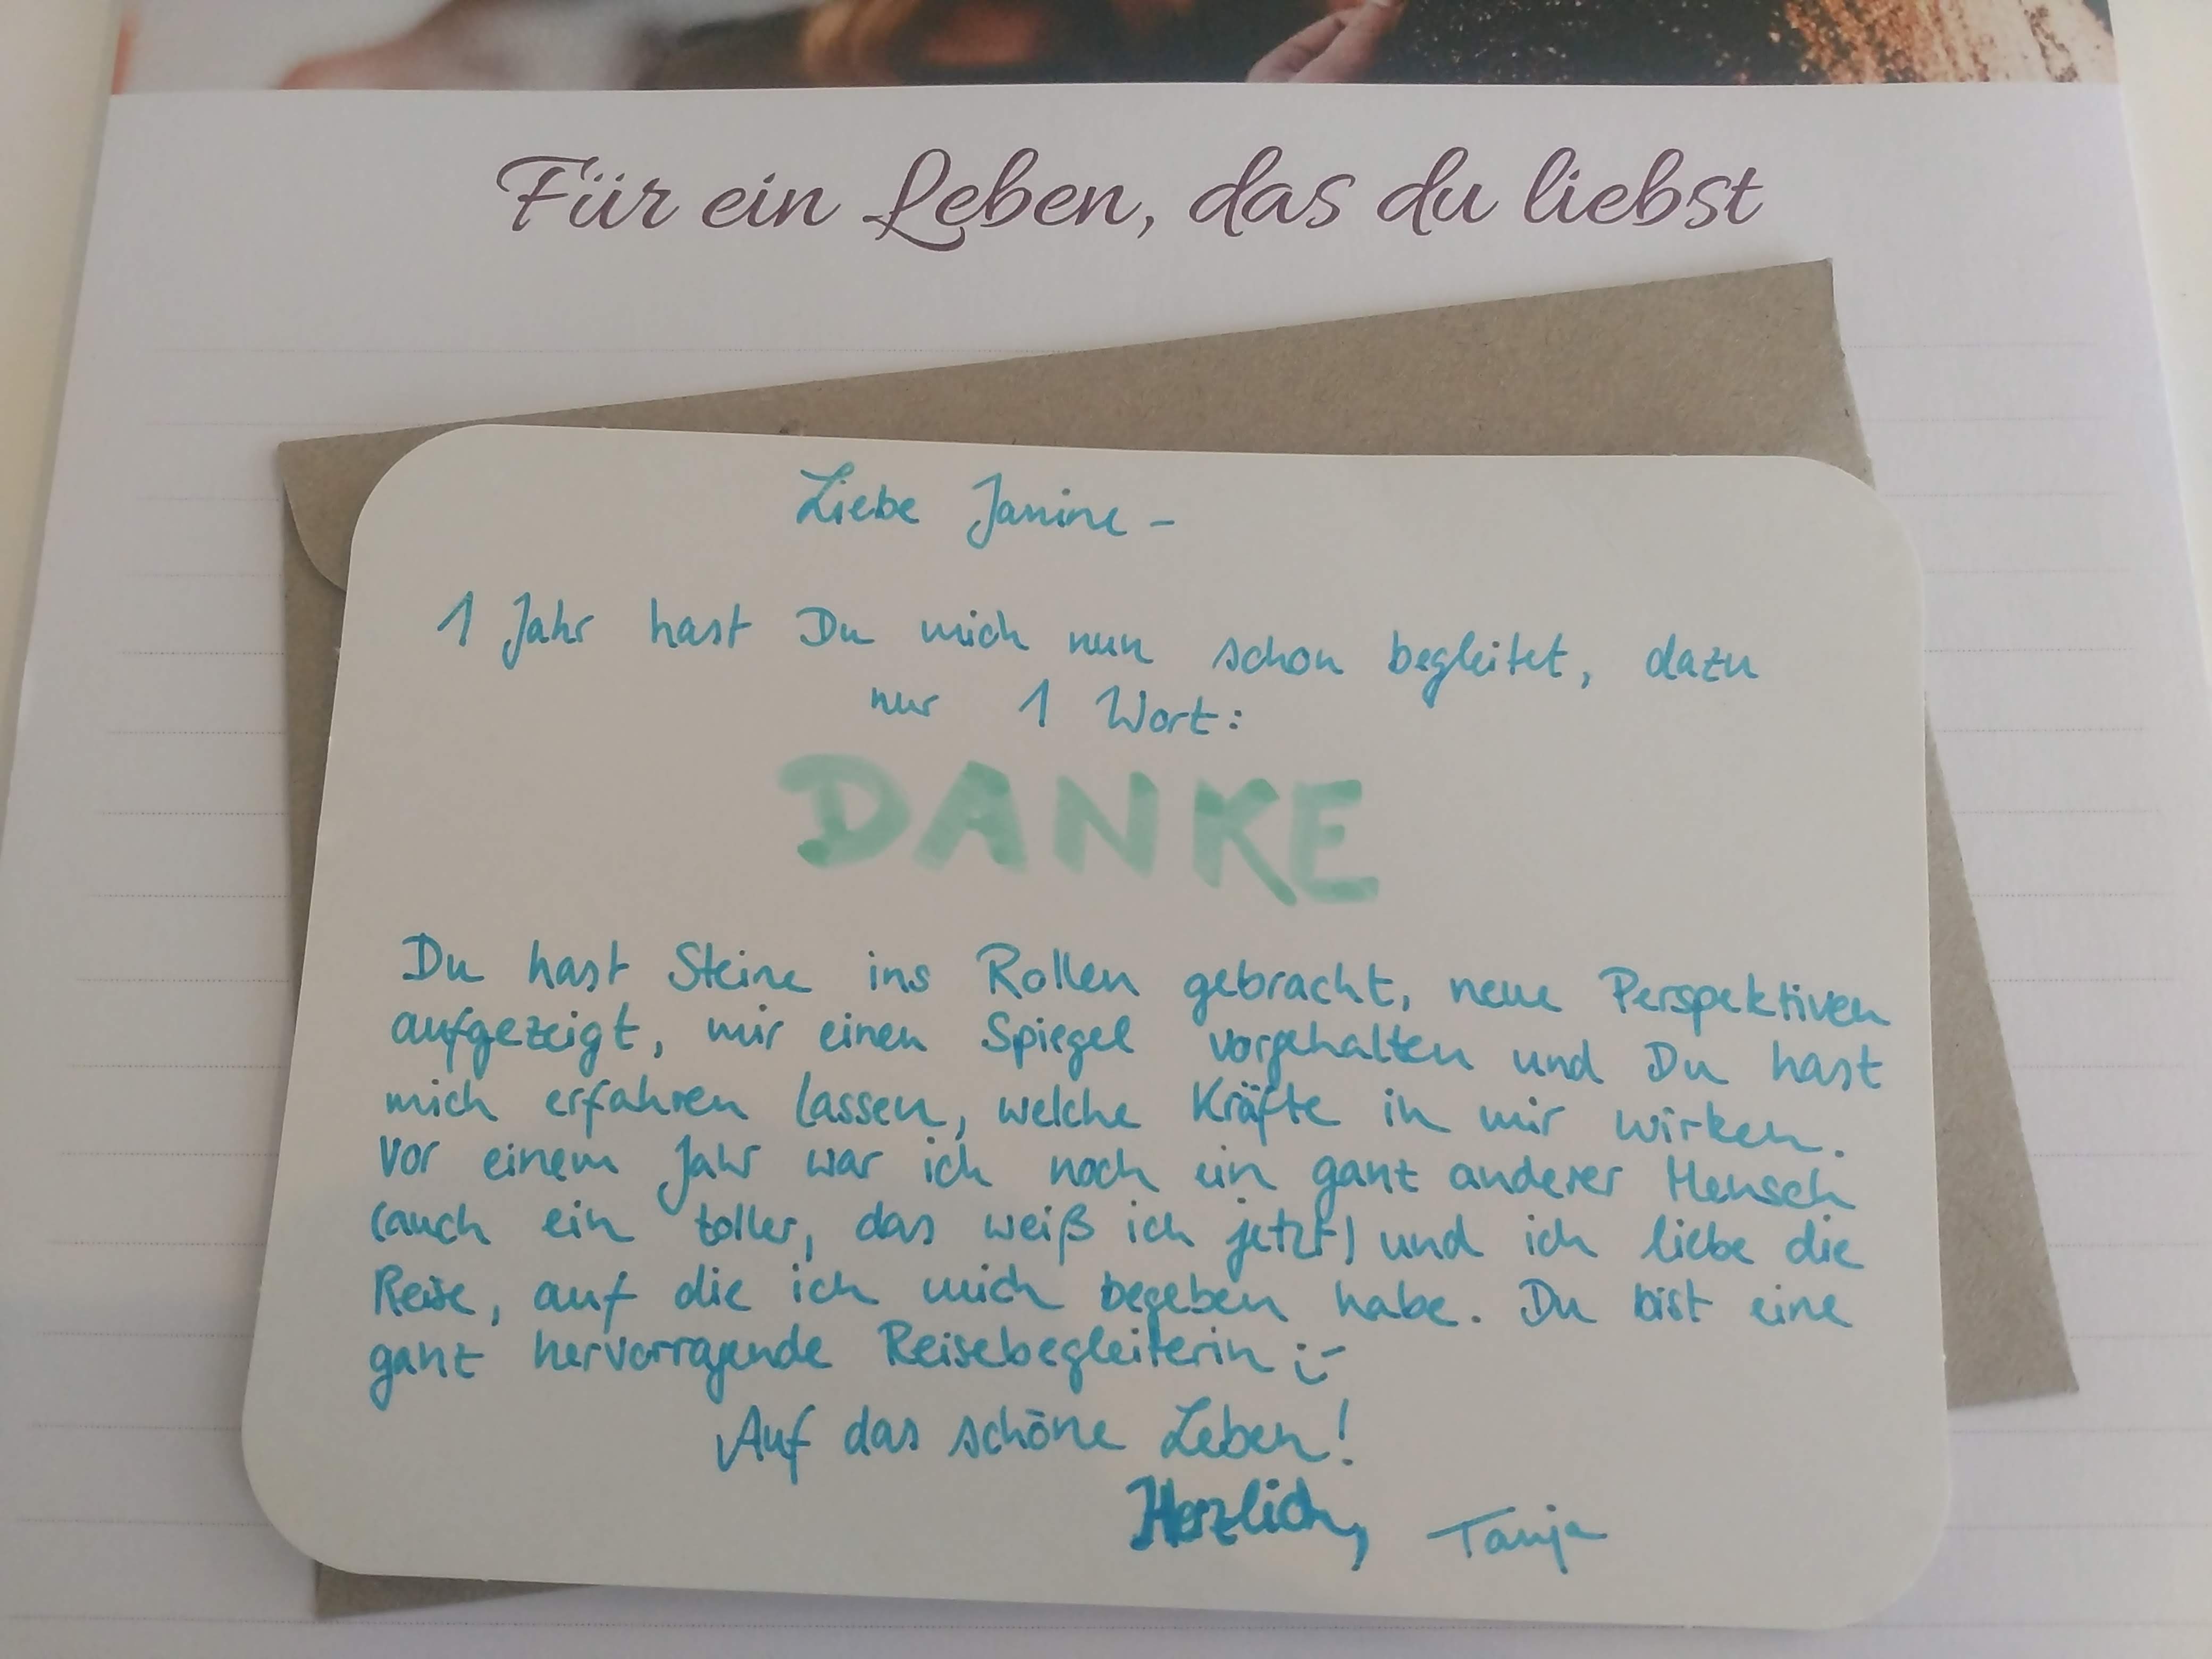 Für ein Leben, das du liebst
Liebe Janine -
1 Jahr hast Du mich nun schon begleitet, dazu
nur 1 Wort:
DANKE
Du hast Steine ins Rollen gebracht, neue Perspektiven
aufgezeigt, mir einen Spiegel vorgehalten und Du hast
mich erfahren lassen, welche Kräfte in mir wirken.
Vor einem Jahr war ich noch ein ganz anderer Mensch
(auch ein toller, das weiß ich jetzt) und ich liebe die
Reise, auf die ich mich begeben habe. Du bist eine
ganz hervorragende Reisebegleiterin ;-
Auf das schöne Leben!
Herzlich, Tanja